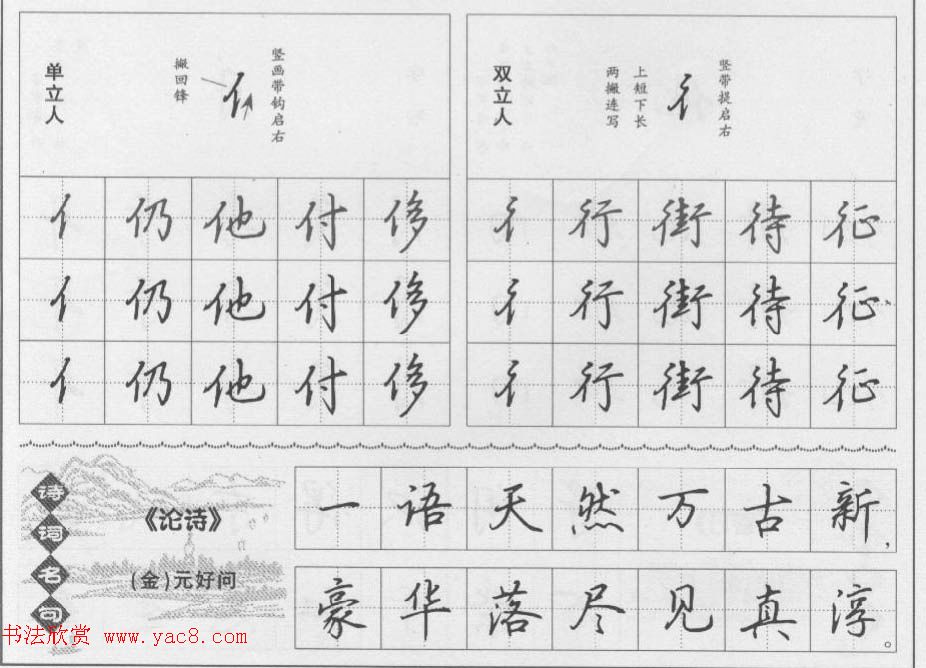 单立人
撇回锋
竖画带钩启右
亻 仍 他 付 侈
亻 仍 他 付 侈
亻 仍 他 付 侈
双立人
两撇连写
上短下长
竖带提启右
彳 行 街 待 征
彳 行 街 待 征
彳 行 街 待 征
诗词名句
《论诗》
(金)元好问
一语天然万古新，
豪华落尽见真淳。
书法欣赏 www.yac8.com